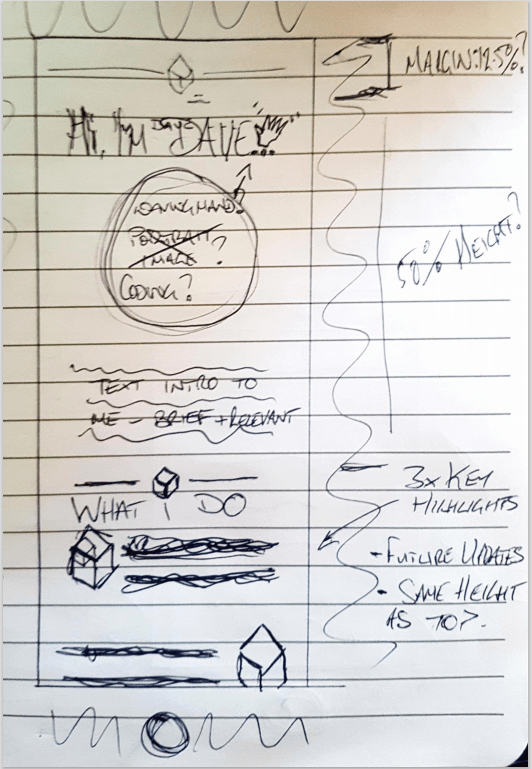 MARGIN: 12.5%?
Hi, I'm DAVE
WAVING HAND?
PORTRAIT
IMAGE?
CODING?
50% HEIGHT?
TEXT INTRO TO
ME - BRIEF + RELEVANT
3x KEY
HIGHLIGHTS
WHAT I DO
- FUTURE UPDATES
- SAME HEIGHT
AS TOP.